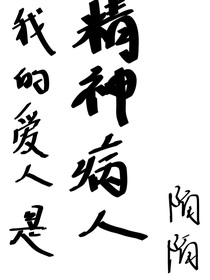 我的爱人是
精神病人
陌陌